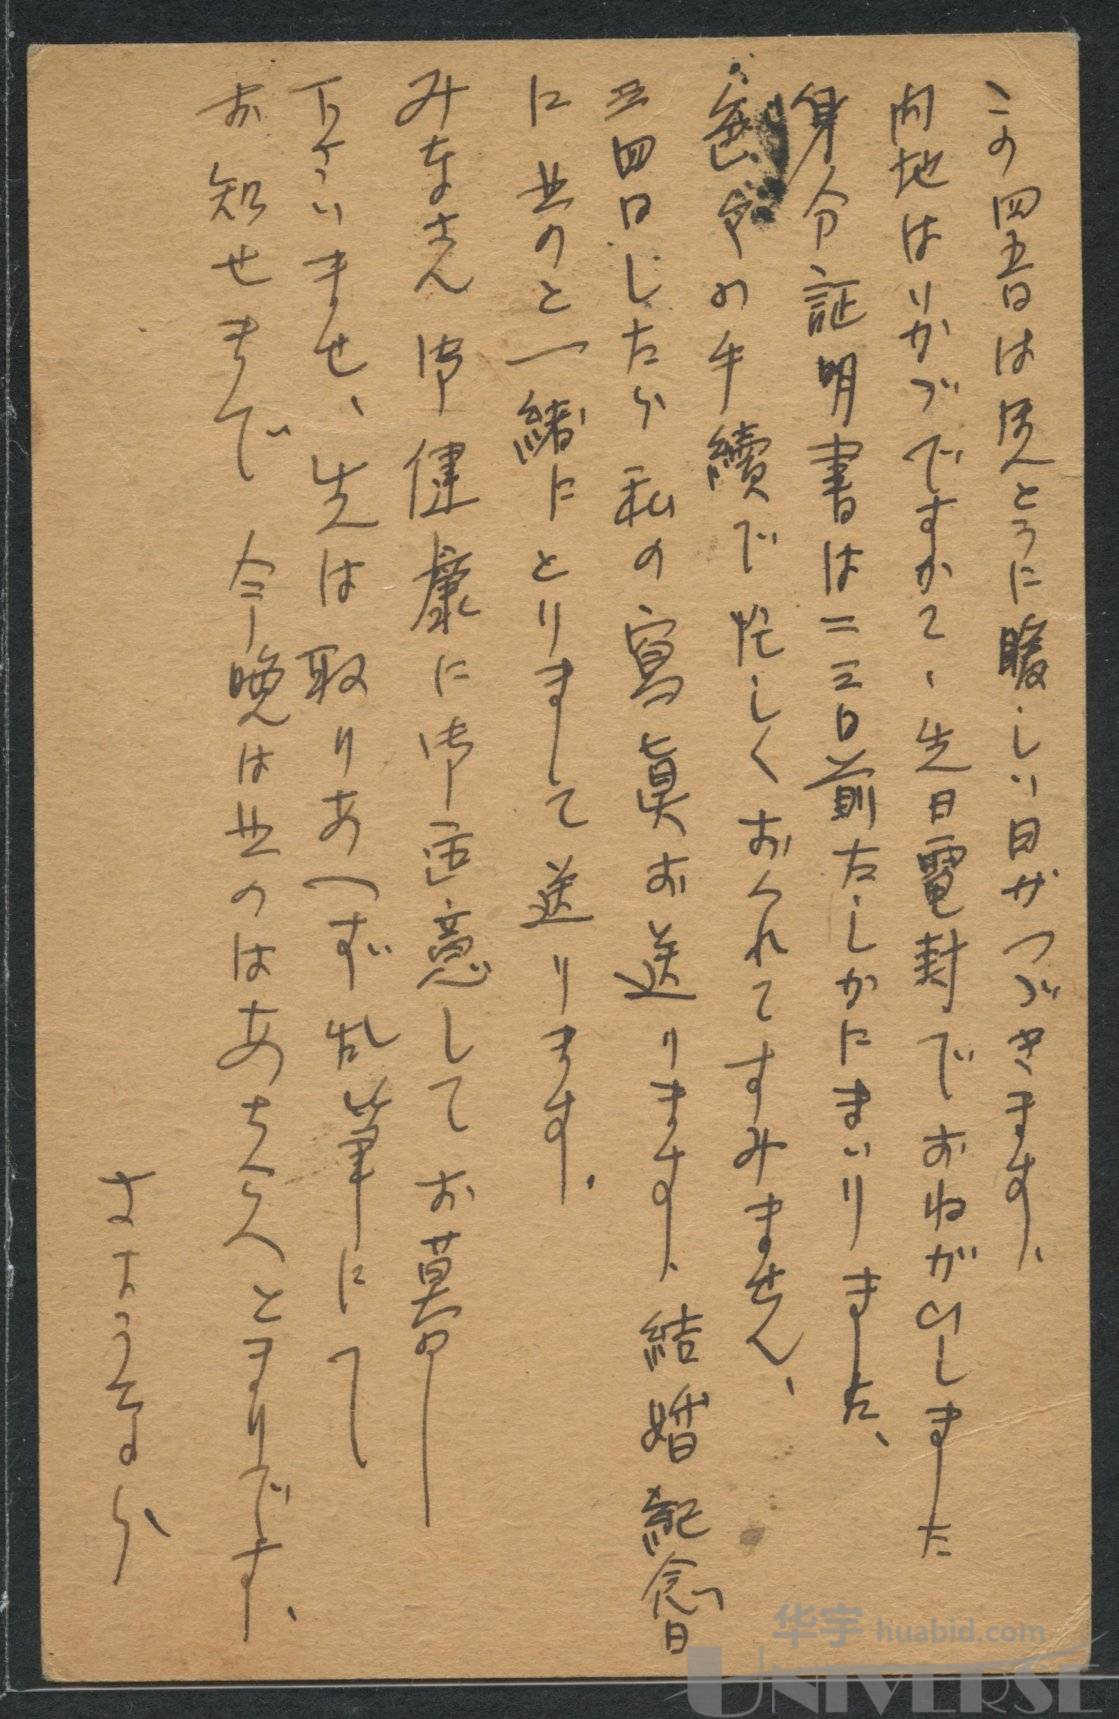 この四五日は思ひとうに暖しい日がつづきます、
内地はいかがですかて、先日電封でおねがいしました
身分証明書は二三日前たしかにまいりました、
色々の手續で忙しくおくれてすみません、
三四日したら私の寫眞お送ります、結婚紀念日
に出のと一緒にとりまして送ります.
みなさん御健康に御注意してお暮し
下さいませ、先は取りあへず乱筆にて
お知せまで 今晩は出のはあちらへとまりです、
さようなら
华宇 huabid.com
UNIVERSE